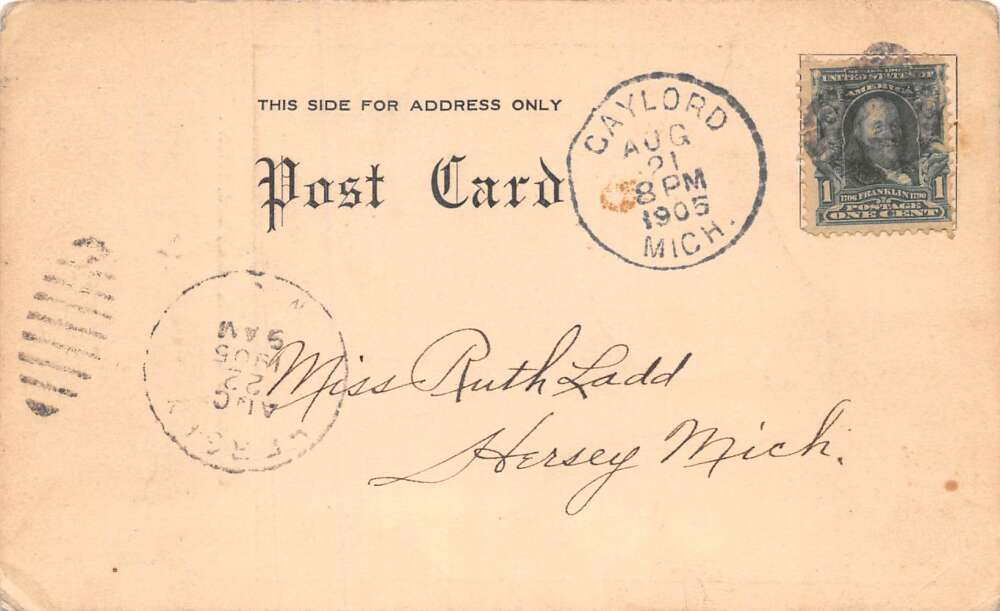 THIS SIDE FOR ADDRESS ONLY
Post Card
GAYLORD
AUG
21
8 PM
1905
MICH.
UNITED STATES OF
AMERICA
1 1706 FRANKLIN 1790 1
POSTAGE
ONE CENT
Miss Ruth Ladd
Hersey Mich.
AUG
22
1905
9 AM